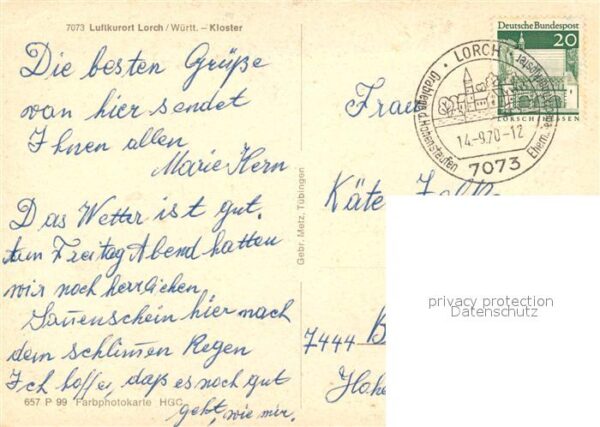 7073 Luftkurort Lorch / Württ. – Kloster
Die besten Grüße
von hier sendet
Ihnen allen
Marie Kern
Das Wetter ist gut.
Am Freitag Abend hatten
wir noch herrlichen
Sonnenschein hier nach
dem schlimen Regen
Ich hoffe, daß es noch gut
geht, wie mir.
657 P 99 Farbphotokarte HGC
Gebr. Metz, Tübingen
Deutsche Bundespost
20
LORSCH HESSEN
LORCH
Grablege d. Hohenstaufen
14.-9.70-12
7073
Frau
Käte
7444 B
Hohe
privacy protection
Datenschutz